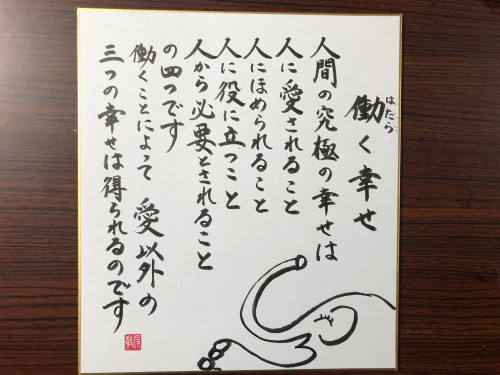 働く幸せ
はたら
人間の究極の幸せは
人に愛されること
人にほめられること
人に役に立つこと
人から必要とされること
の四つです
働くことによって 愛以外の
三つの幸せは得られるのです